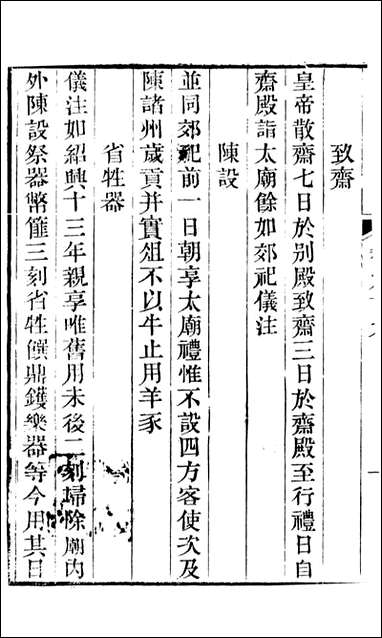 致齋
皇帝散齋七日於别殿致齋三日於齋殿至行禮日自
齋殿詣太廟餘如郊祀儀注
陳設
並同郊祀前一日朝享太廟禮惟不設四方客使次及
陳諸州歲貢并實俎不以牛止用羊豕
省牲器
儀注如紹興十三年親享唯舊用未後二刻埽除廟内
外陳設祭器幣篚三刻省牲饌鼎鑊樂器等今用其日